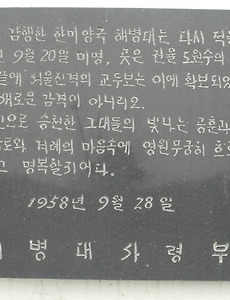 감행한 한미양국 해병대는 다시 적을
년 9월 20일 미명, 곳은 권율 도원수의
들에 서울진격의 교두보는 이에 확보되었
새로운 감격이 아니리오.
으로 승천한 그대들의 빛나는 공훈과
도와 겨레의 마음속에 영원무궁히 흐르
고 명복할지어다.
1958년 9월 28일
병대사령부